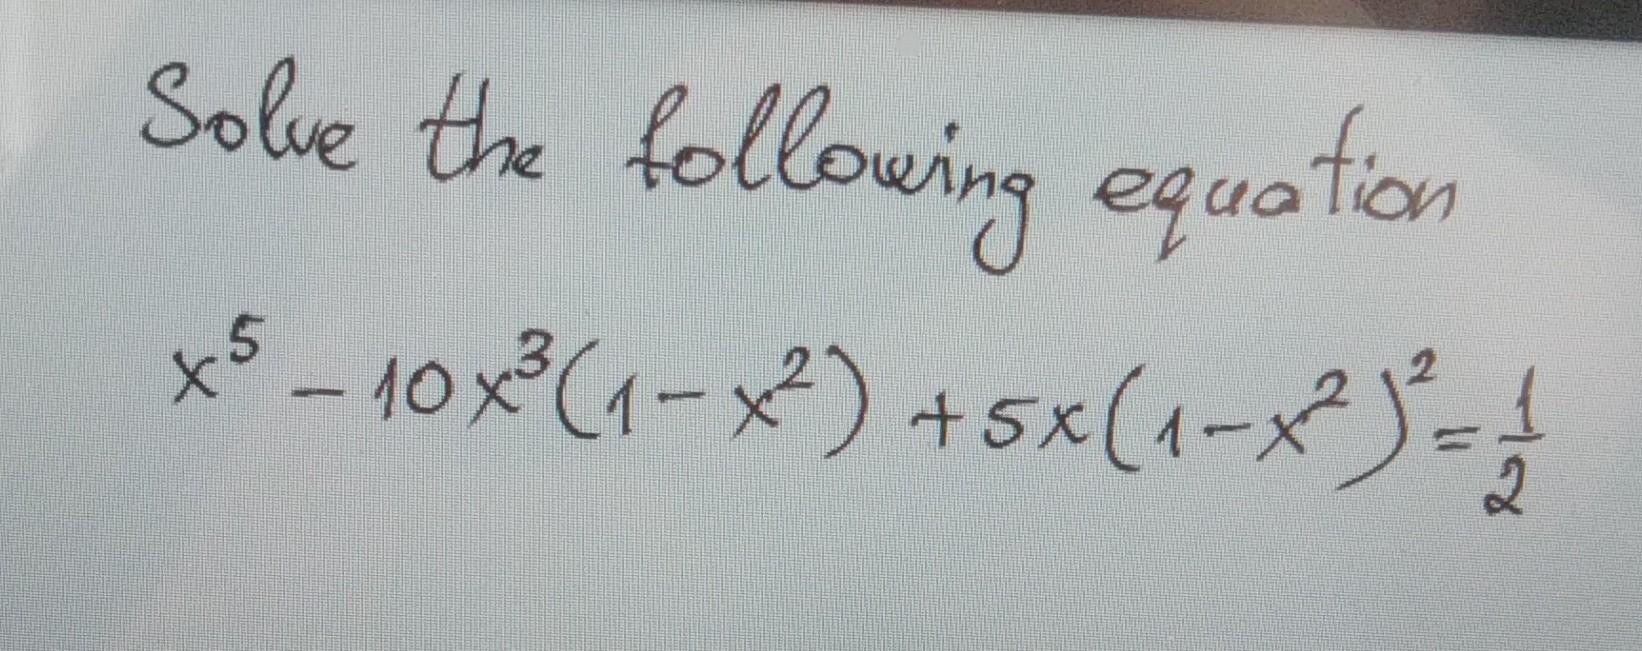 Solve the following equation
x⁵ - 10x³(1-x²) + 5x(1-x²)² = 1/2